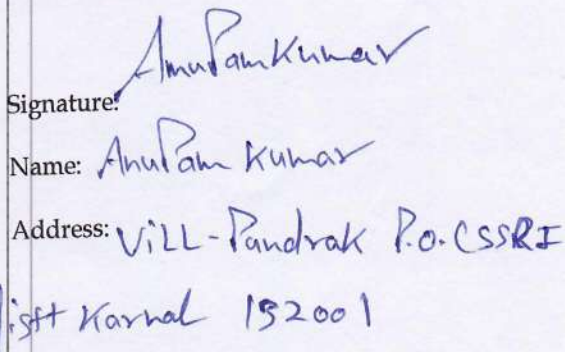 AnuPam Kumar
Signature:
Name: AnuPam Kumar
Address: ViLL-Pandrak P.O. CSSRI
Distt Karnal 132001